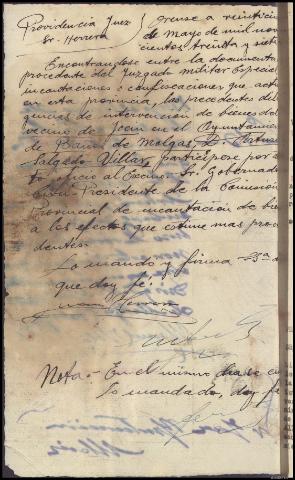 Providencia Juez
Sr. Herrera
Orense a veinticin
de Mayo de mil nov
cientos treinta y siete
Encontrandose entre la documenta
procedente del Juzgado militar Especial
incautaciones o confiscaciones que actu
en esta provincia, las precedentes dil
gencias de intervención de bienes del
vecino de en el Ayuntamien
de Baños de Molgas, D. Arturo
Salgado Villar, participese por a
to oficio al Excmo. Sr. Gobernado
Civil-Presidente de la Comisión
Provincial de incautación de bie
a los efectos que estime mas proce
dentes.
Lo mandó y firma S.Sª d
que doy fé.
Nota.- En el mismo dia se cu
lo mandado, doy fé